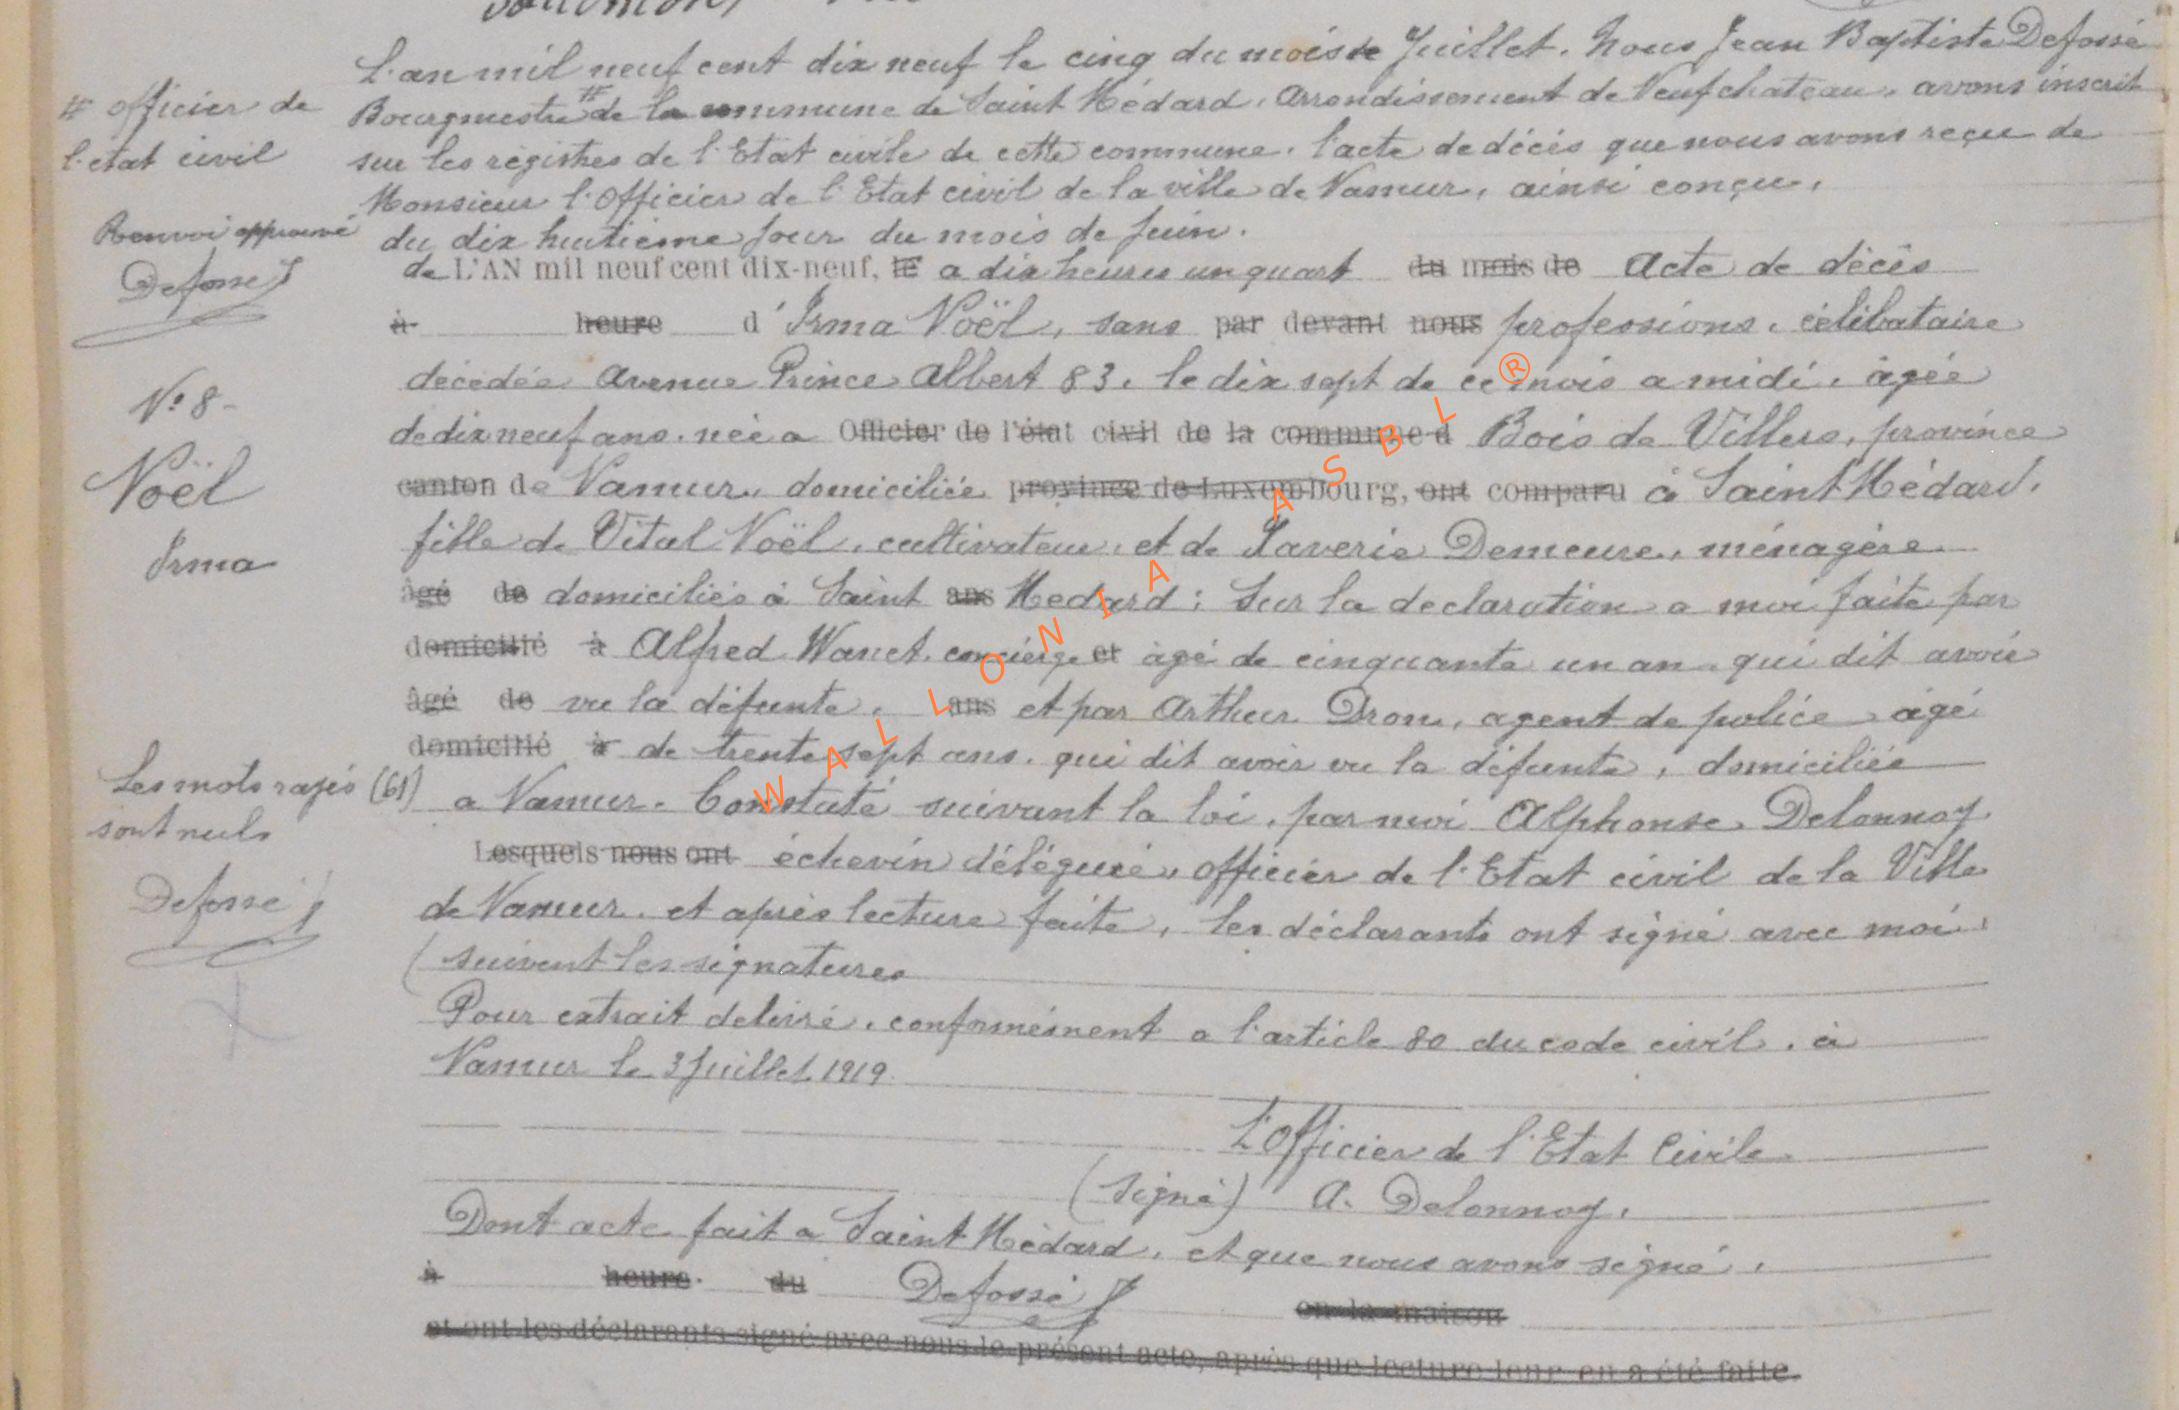 L'an mil neuf cent dix neuf le cinq du mois de Juillet. Nous Jean Baptiste Defossé
Bourgmestre # de la commune de Saint Médard, Arrondissement de Neufchateau, avons inscrit
sur les régistres de l'Etat civile de cette commune, l'acte de décès que nous avons reçu de
Monsieur l'Officier de l'Etat civil de la ville de Namur, ainsi conçu,
du dix huitième jour du mois de Juin.
de L'AN mil neuf cent dix-neuf, le a dix heures un quart du mois de Acte de décès
à heure d'Irma Noël, sans par devant nous professions, célibataire
décédée Avenue Prince Albert 83, le dix sept de ce mois a midi, âgée
de dix neuf ans, née a Officier de l'état civil de la commune d Bois de Villers, province
canton de Namur, domiciliée province de Luxembourg, ont comparu à Saint Médard,
fille de Vital Noël, cultivateur, et de Xaverie Demeure, ménagère
âgé de domiciliés à Saint ans Medard; Sur la declaration a moi faite par
domicilié à Alfred Wanet, concierge et âgé de cinquante un an, qui dit avoir
âgé de vu la défunte, ans et par Arthur Dron, agent de police âgé
domicilié à de trente sept ans, qui dit avoir vu la défunte, domiciliés
a Namur. Constaté suivant la loi, par moi Alphonse Delonnoy
Lesquels nous ont échevin délégué, officier de l'Etat civil de la Ville
de Namur, et après lecture faite, les déclarants ont signé avec moi
(suivent les signatures
Pour extrait delivré, conformément a l'article 80 du code civil, à
Namur le 3 Juillet 1919
L'Officier de l'Etat Civile
(signé) A. Delonnoy.
Dont acte fait a Saint Médard, et que nous avons signé,
à heure du Defossé en la maison
et ont les déclarants signé avec nous le présent acte, après que lecture leur en a été faite.
# officier de
l'état civil
Renvoi approuvé
Defossé
N° 8
Noël
Irma
Les mots rayés (61)
sont nuls
Defossé
WALLONIA ASBL ®